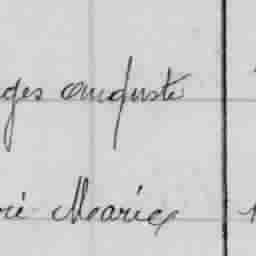 ges auguste
ré Marie